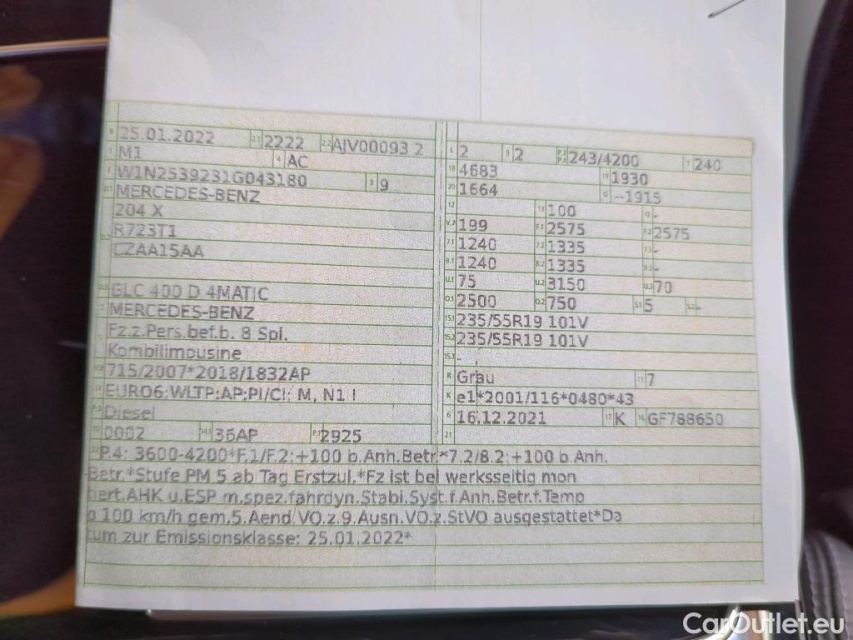 25.01.2022 2222 AJV00093 2
M1 AC
W1N2539231G043180 9
MERCEDES-BENZ
204 X
R723T1
CZAA15AA
GLC 400 D 4MATIC
MERCEDES-BENZ
Fz.z.Pers.bef.b. 8 Spl.
Kombilimousine
715/2007*2018/1832AP
EURO6;WLTP;AP;PI/CI; M, N1 I
Diesel
0002 36AP 2925
2 2 243/4200 240
4683 1930
1664 --1915
100 -
199 2575 2575
1240 1335 -
1240 1335 -
75 3150 70
2500 750 5 -
235/55R19 101V
235/55R19 101V
-
Grau 7
e1*2001/116*0480*43
16.12.2021 K GF788650
P.4: 3600-4200*F.1/F.2:+100 b.Anh.Betr.*7.2/8.2:+100 b.Anh.
Betr.*Stufe PM 5 ab Tag Erstzul.*Fz ist bei werksseitig mon
tiert.AHK u.ESP m.spez.fahrdyn.Stabi.Syst.f.Anh.Betr.f.Temp
o 100 km/h gem.5.Aend.VO.z.9.Ausn.VO.z.StVO ausgestattet*Da
tum zur Emissionsklasse: 25.01.2022*
CarOutlet.eu